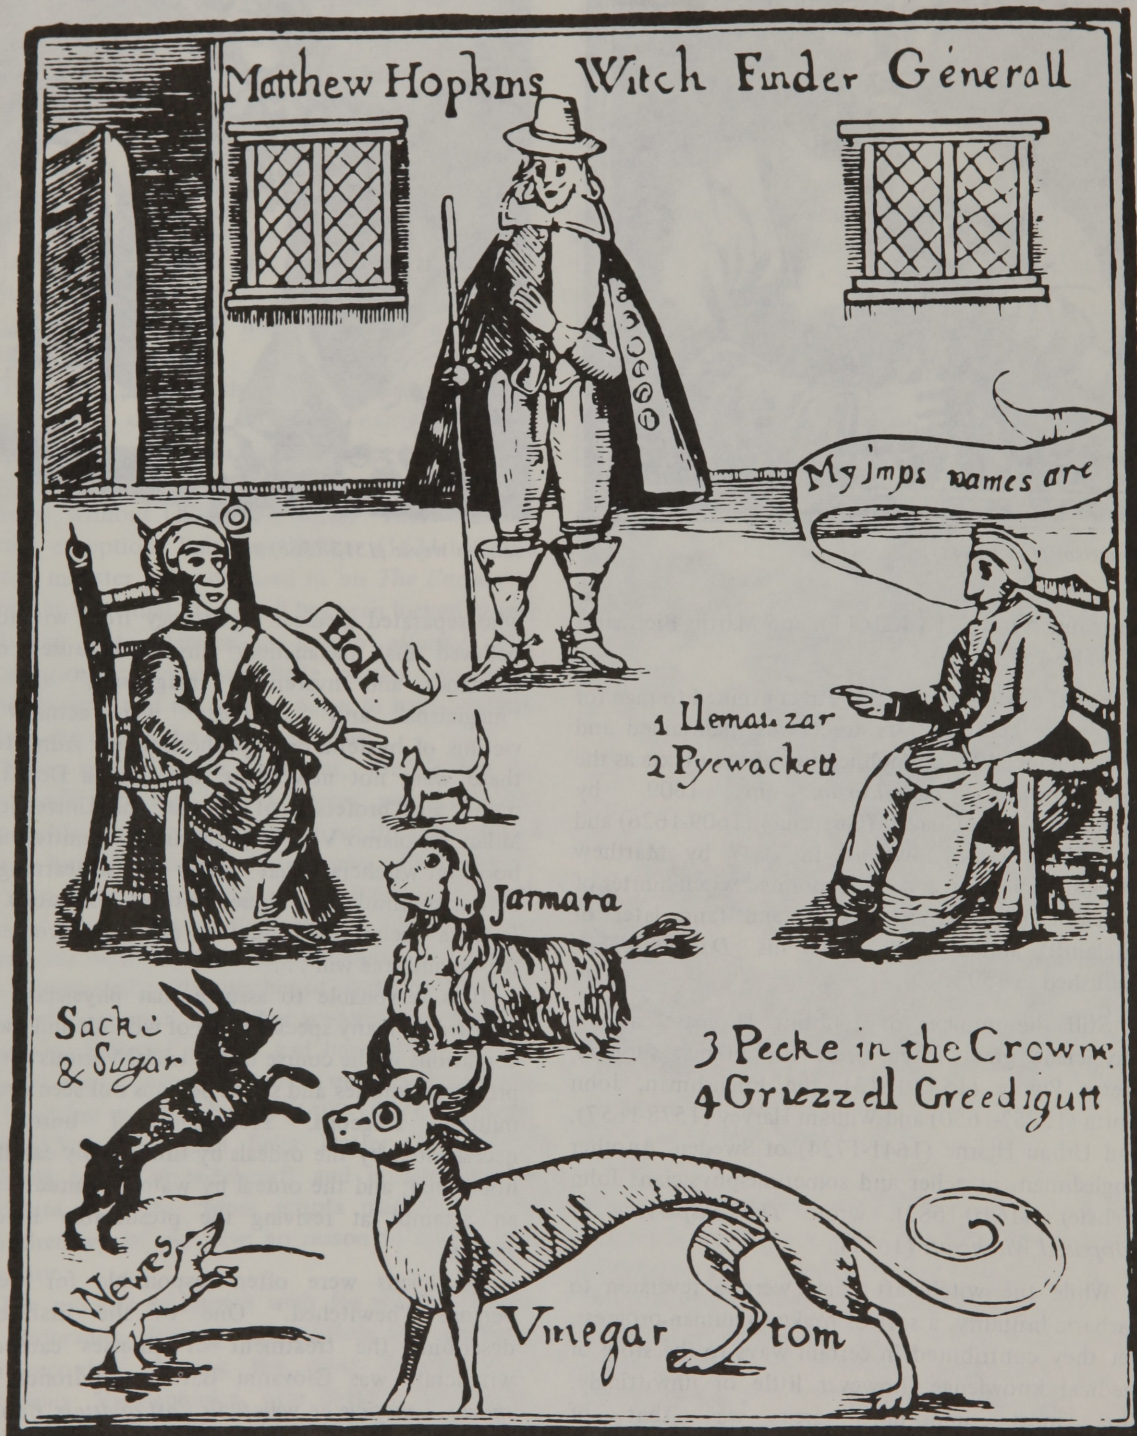 Matthew Hopkins Witch Finder Generall
My Jmps names are
Holt
1 Ilemauzar
2 Pyewackett
Jarmara
Sacke
& Sugar
3 Pecke in the Crowne
4 Griezzell Greedigutt
Newes
Vinegar tom